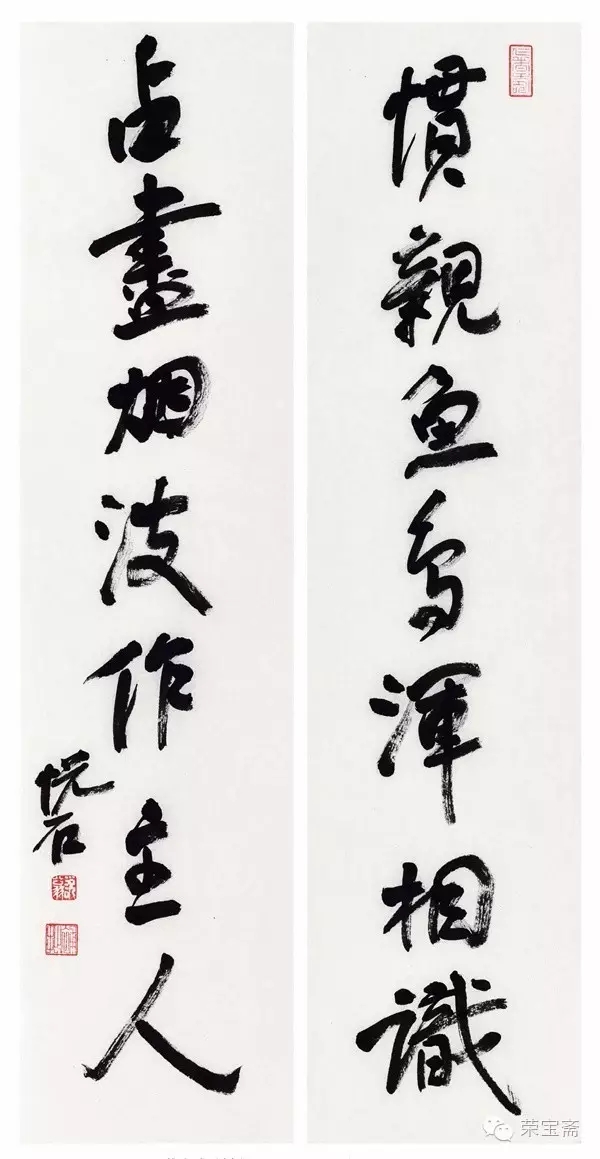 慣觀魚鳥渾相識
占盡烟波作主人
悦石
荣宝斋